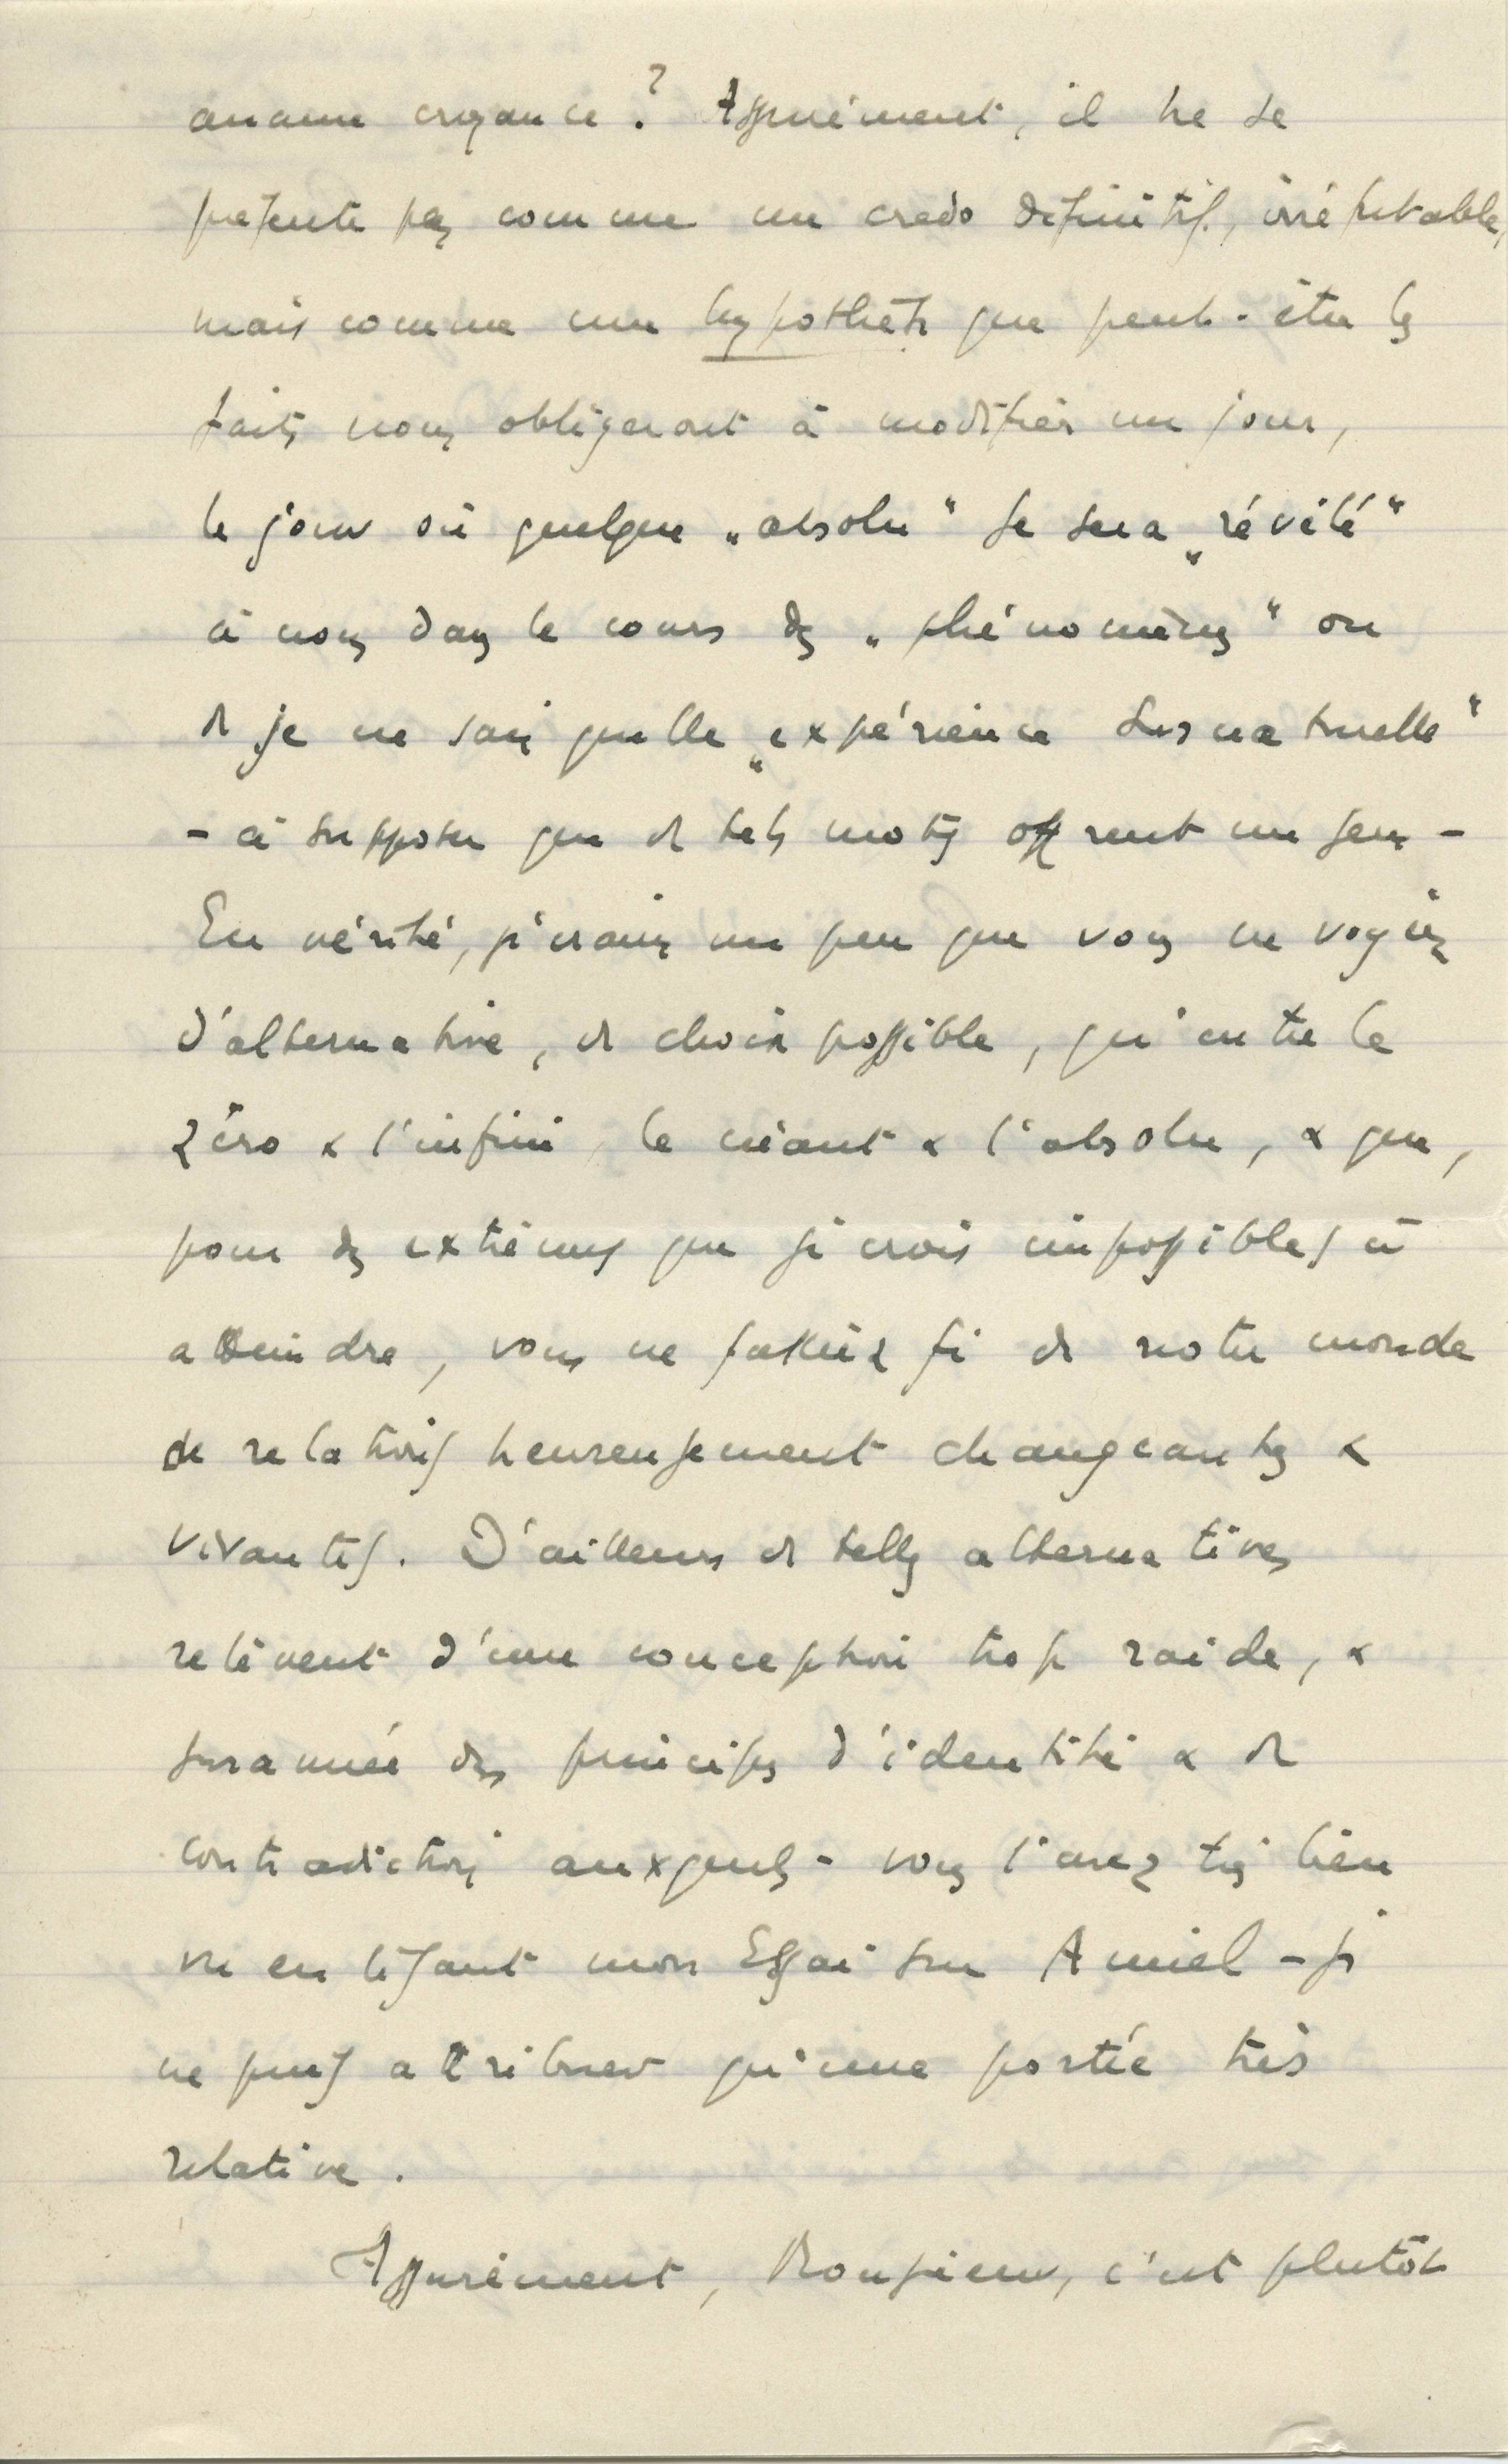 aucune croyance ? Assurément, il ne se
présente pas comme un credo définitif, irréfutable,
mais comme une hypothèse que peut-être les
faits nous obligeront à modifier un jour,
le jour où quelque „absolu" se sera „révélé"
à nous dans le cours des „phénomènes" ou
de je ne sais quelle „expérience surnaturelle"
- à supposer que de tels mots offrent un sens -
En vérité, je crains un peu que vous ne voyiez
d'alternative, de choix possible, qu'entre le
zéro & l'infini, le néant & l'absolu, & que,
pour des extrêmes que je crois impossibles à
atteindre, vous ne fassiez fi de notre monde
de relations heureusement changeantes &
vivantes. D'ailleurs de telles alternatives
relèvent d'une conception trop raide, &
surannée des principes d'identité & de
contradiction auxquels - vous l'avez très bien
vu en lisant mon Essai sur Amiel - je
ne puis attribuer qu'une portée très
relative.
Assurément, Monsieur, c'est plutôt